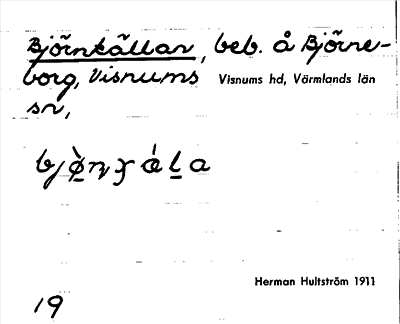 Björnkällan, beb. å Björne-
borg, Visnums Visnums hd, Värmlands län
sn,
Herman Hultström 1911
19